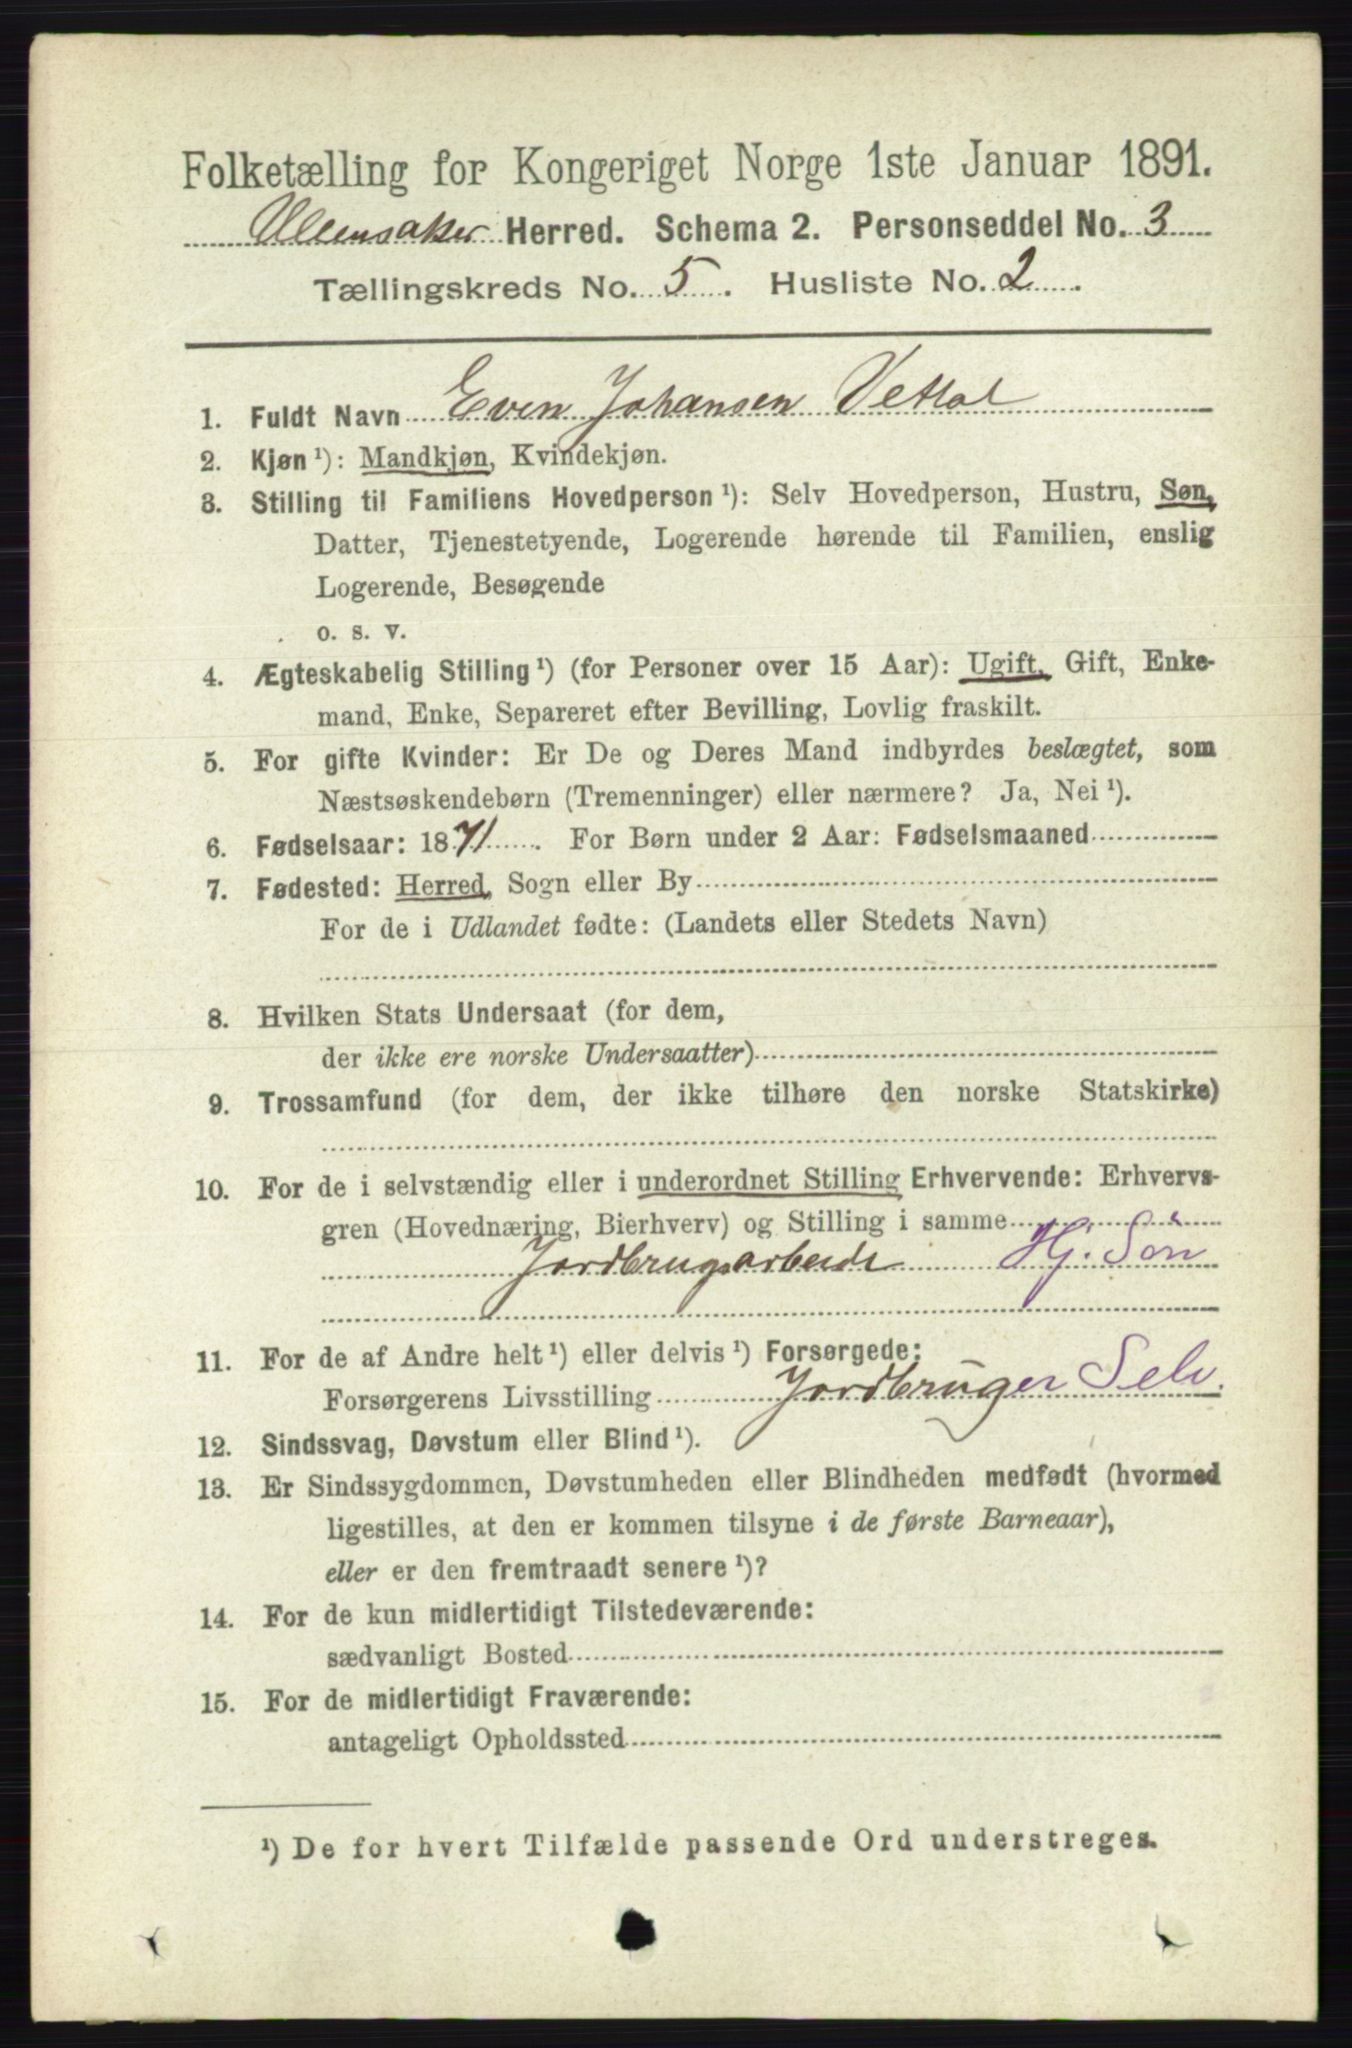 Folketælling for Kongeriget Norge 1ste Januar 1891.
Ullensaker Herred. Schema 2. Personseddel No. 3
Tællingskreds No. 5. Husliste No. 2.
1. Fuldt Navn Even Johansen Vettal
2. Kjøn ¹): Mandkjøn, Kvindekjøn.
3. Stilling til Familiens Hovedperson ¹): Selv Hovedperson, Hustru, Søn,
Datter, Tjenestetyende, Logerende hørende til Familien, enslig
Logerende, Besøgende
o. s. v.
4. Ægteskabelig Stilling ¹) (for Personer over 15 Aar): Ugift, Gift, Enke-
mand, Enke, Separeret efter Bevilling, Lovlig fraskilt.
5. For gifte Kvinder: Er De og Deres Mand indbyrdes beslægtet, som
Næstsøskendebørn (Tremenninger) eller nærmere? Ja, Nei ¹).
6. Fødselsaar: 1871. For Børn under 2 Aar: Fødselsmaaned
7. Fødested: Herred, Sogn eller By
For de i Udlandet fødte: (Landets eller Stedets Navn)
8. Hvilken Stats Undersaat (for dem,
der ikke ere norske Undersaatter)
9. Trossamfund (for dem, der ikke tilhøre den norske Statskirke)
10. For de i selvstændig eller i underordnet Stilling Erhvervende: Erhvervs-
gren (Hovednæring, Bierhverv) og Stilling i samme
Jordbrugsarbeide Hj. Søn
11. For de af Andre helt ¹) eller delvis ¹) Forsørgede:
Forsørgerens Livsstilling Jordbruger Selv.
12. Sindssvag, Døvstum eller Blind ¹).
13. Er Sindssygdommen, Døvstumheden eller Blindheden medfødt (hvormed
ligestilles, at den er kommen tilsyne i de første Barneaar),
eller er den fremtraadt senere ¹)?
14. For de kun midlertidigt Tilstedeværende:
sædvanligt Bosted
15. For de midlertidigt Fraværende:
antageligt Opholdssted
¹) De for hvert Tilfælde passende Ord understreges.